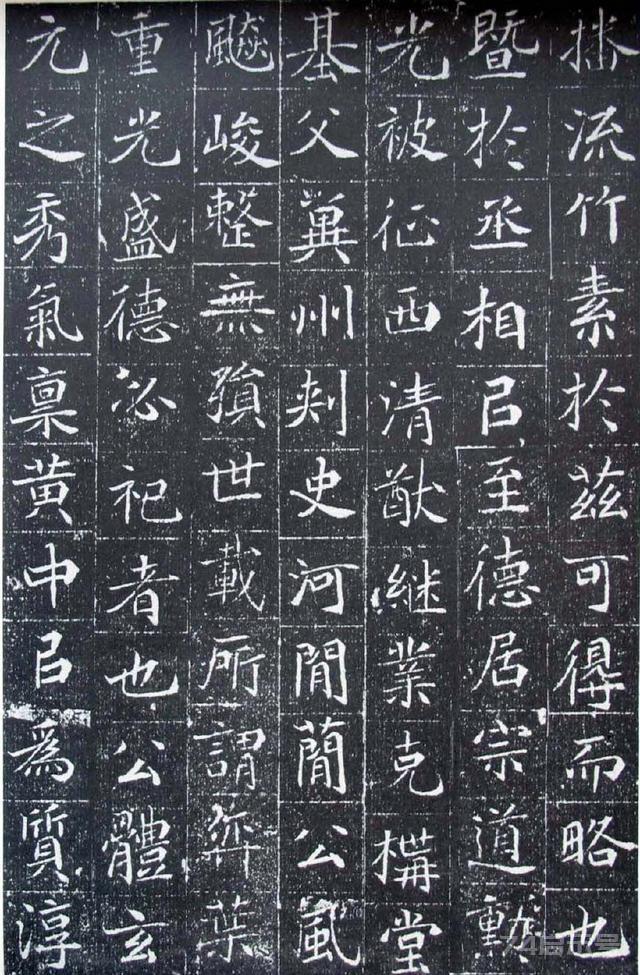 播流竹素於茲可得而略也
暨於丞相㠯至德居宗道勲
光被征西清猷継業克構堂
基父冀州刺史河間簡公風
飈峻整無殞世載所謂弈葉
重光盛德必祀者也公體玄
元之秀氣稟黃中㠯為質淳